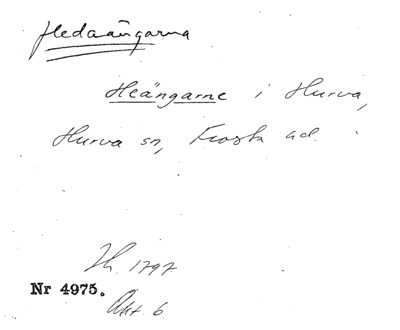 Hedaängarna
Heängarne i Hurva,
Hurva sn, Frosta hd.
Lh. 1797
Nr 4975.
Akt. 6